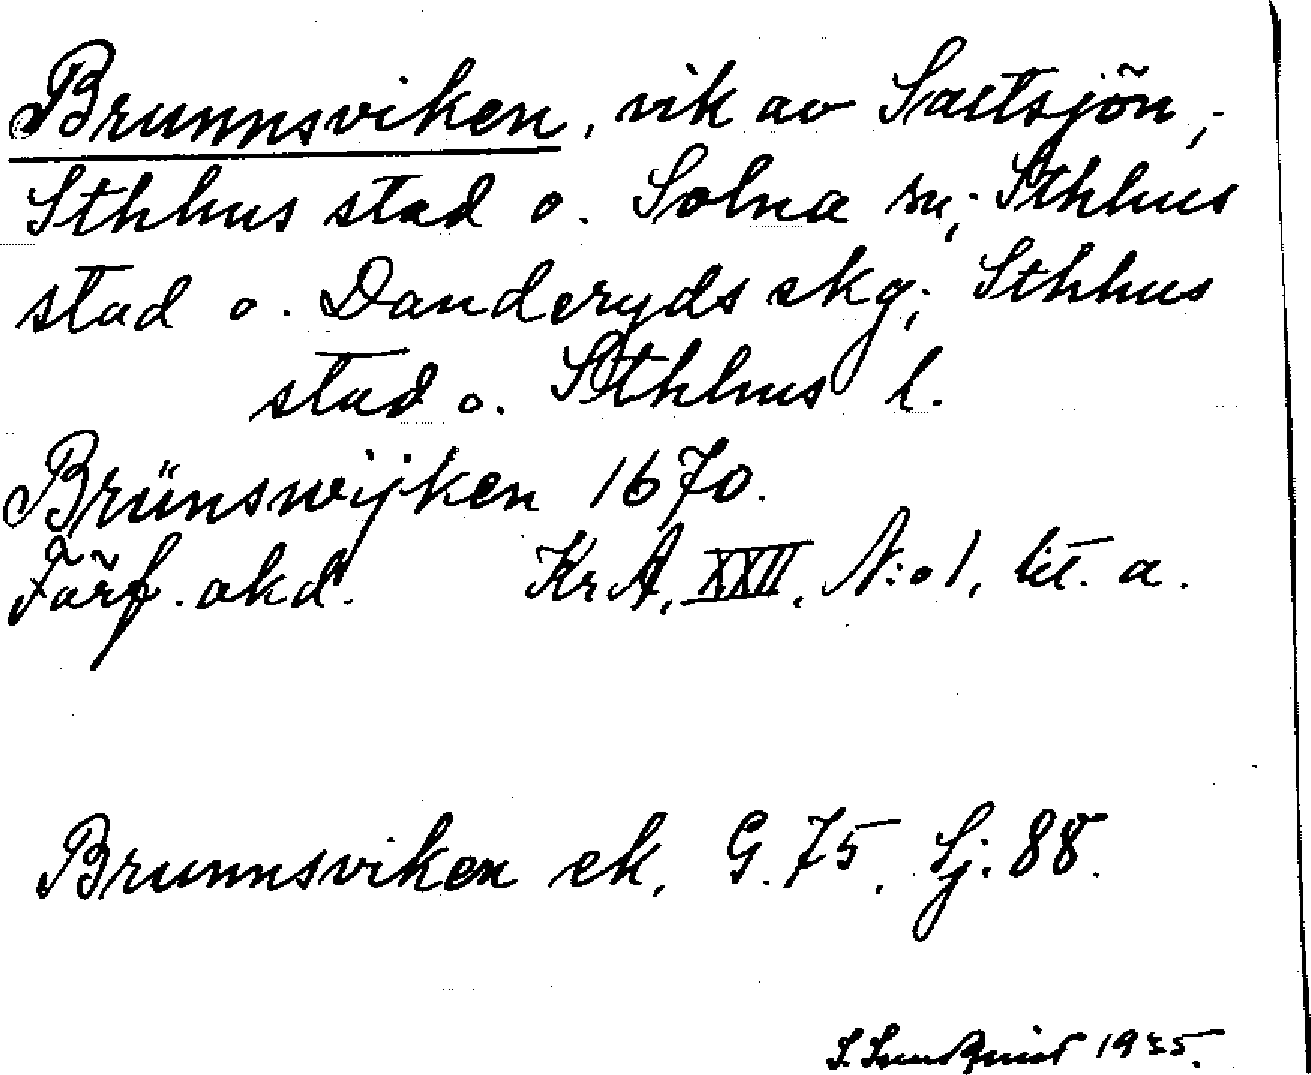 Brunnsviken, vik av Saltsjön,
Sthlms stad o. Solna sn; Sthlms
stad o. Danderyds skg; Sthlms
stad o. Sthlms l.
Brünswijken 1670.
Förf. okd. KrA, XXII, N:o 1, lit. a.
Brunnsviken ek. G. 75, Sj. 88.
1935.